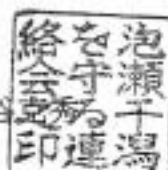 泡瀬干潟
を守る連
絡会之印